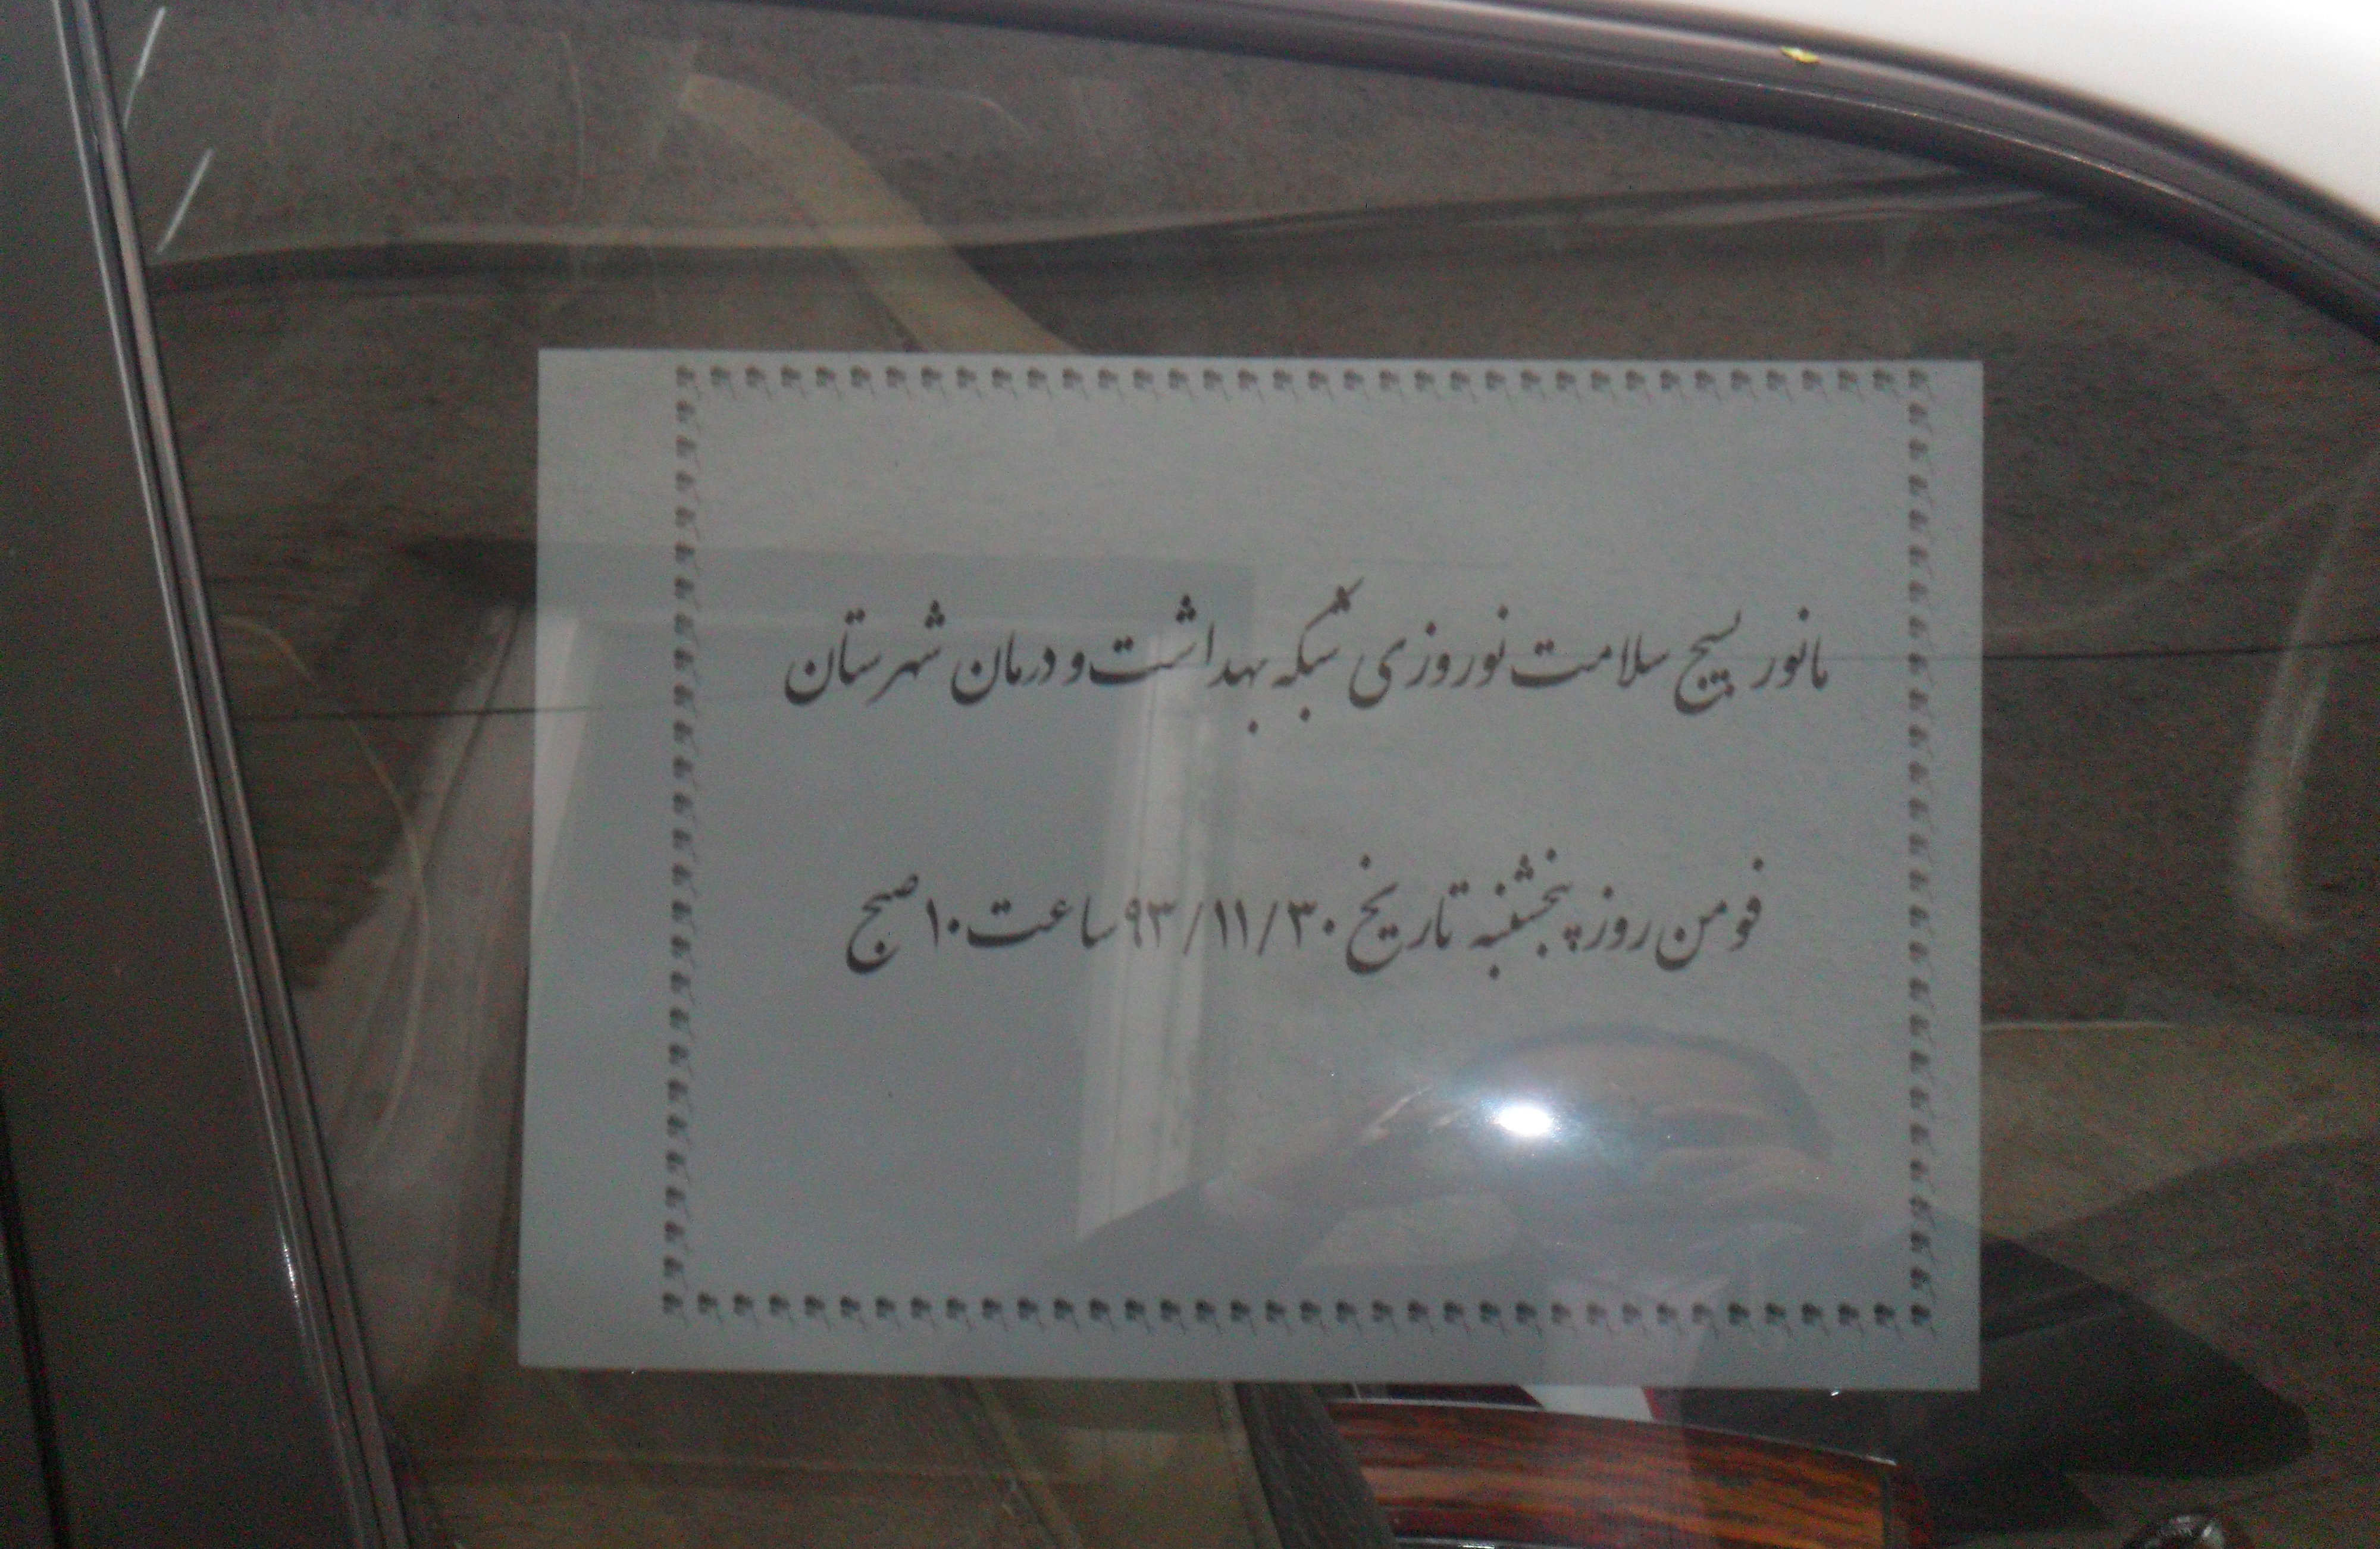 مانور بسیج سلامت نوروزی شبکه بهداشت و درمان شهرستان
فومن روز پنجشنبه تاریخ ۹۳/۱۱/۳۰ ساعت ۱۰ صبح